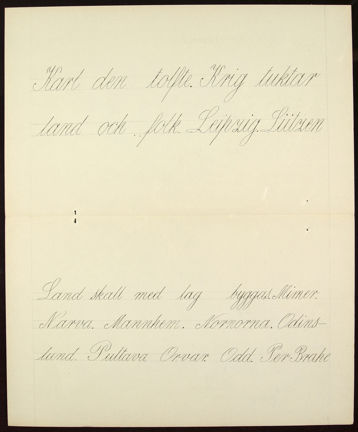 Karl den tolfte. Krig tuktar
land och folk. Leipzig. Lützen
Land skall med lag byggas. Mimer.
Narva. Mannhem. Nornorna. Odins-
lund. Pultava. Orvar. Odd. Per Brahe